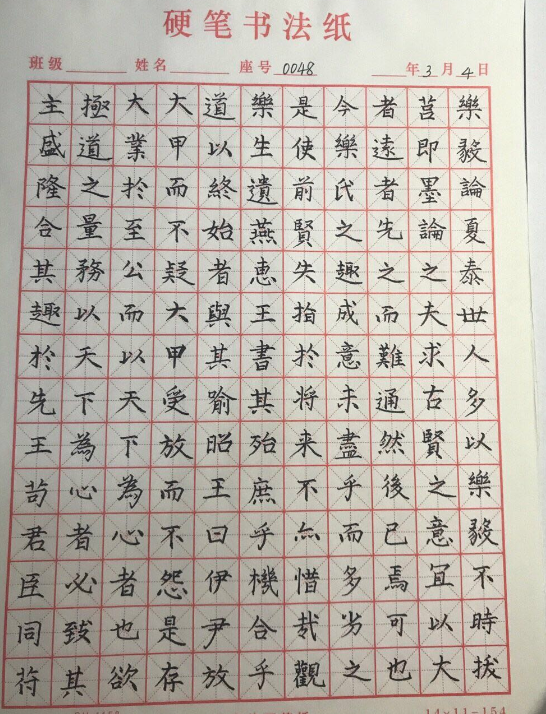 硬笔书法纸
班级 姓名 座号 0048 年 3 月 4 日
樂毅論夏泰世人多以樂毅不時拔
莒即墨論之夫求古賢之意宜以大
者遠者先之而難通然後已焉可也
今樂氏之趣成意未盡乎而多劣之
是使前賢失指於将来不亦惜哉觀
樂生遺燕惠王書其殆庶乎機合乎
道以終始者與其喻昭王曰伊尹放
大甲而不疑大甲受放而不怨是存
大業於至公而以天下為心者也欲
極道之量務以天下為心者必致其
主盛隆合其趣於先王苟君臣同符
14×11=154